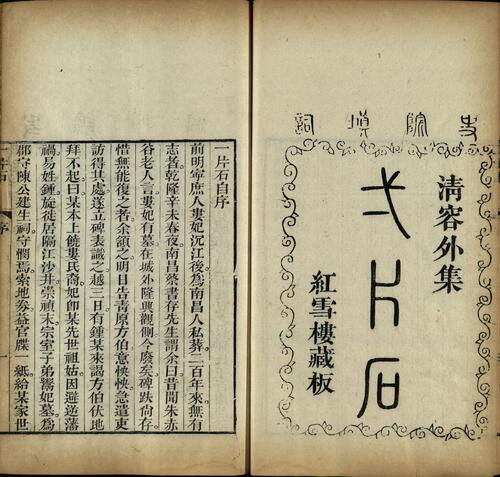 史院填詞
清容外集
弌片石
紅雪樓藏板
一片石自序
前明寧庶人婁妃沉江後為南昌人私葬二百年來無有
志者乾隆辛未春夜南昌蔡書存先生謂余曰昔聞朱赤
谷老人言婁妃有墓在城外隆興觀側今廢矣碑趺尚存
惜無能復之者余頷之明日告青原方伯意怏怏急遣吏
訪得其處遂立碑表識之越三日有鍾某來謁方伯伏地
拜不起曰某本上饒婁氏裔妃即某先世祖姑因避逆藩
禍易姓鍾旋徙居隔江沙井崇禎末宗室子弟鬻妃墓為
郡守陳公建生祠守憫焉索地券益官牒一紙給某家世
序